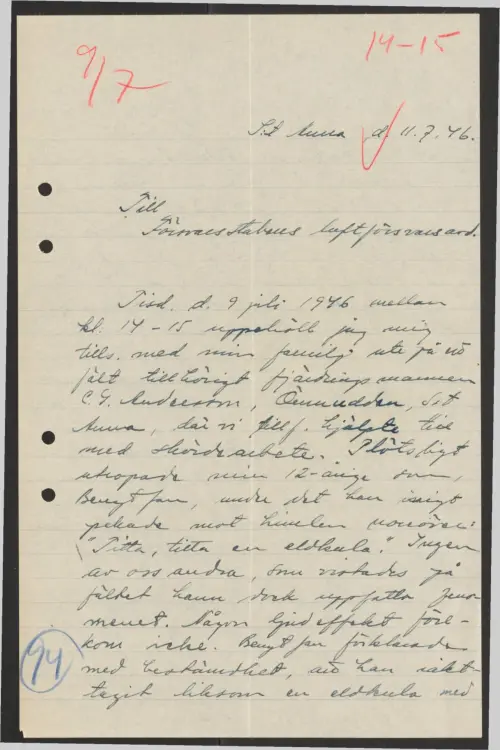 9/7
14-15
S:t Anna d. 11.7.46.
Till
Försvarsstabens luftförsvarsavd.
Tisd. d. 9 juli 1946 mellan
kl. 14-15 uppehöll jag mig
tills. med min familj ute på ett
fält tillhörigt fjärdingsmannen
C.G. Andersson, Ösmudden, S:t
Anna, där vi hjälpte till
med skördearbete. Plötsligt
utropade min 12-årige son,
Bengt Jan, under det han ivrigt
pekade mot himlen norröver:
"Titta, titta en eldkula." Ingen
av oss andra, som vistades på
fältet hann dock uppfatta feno-
menet. Någon ljudeffekt före-
kom icke. Bengt Jan förklarade
med bestämdhet, att han iakt-
tagit liksom en eldkula med
94